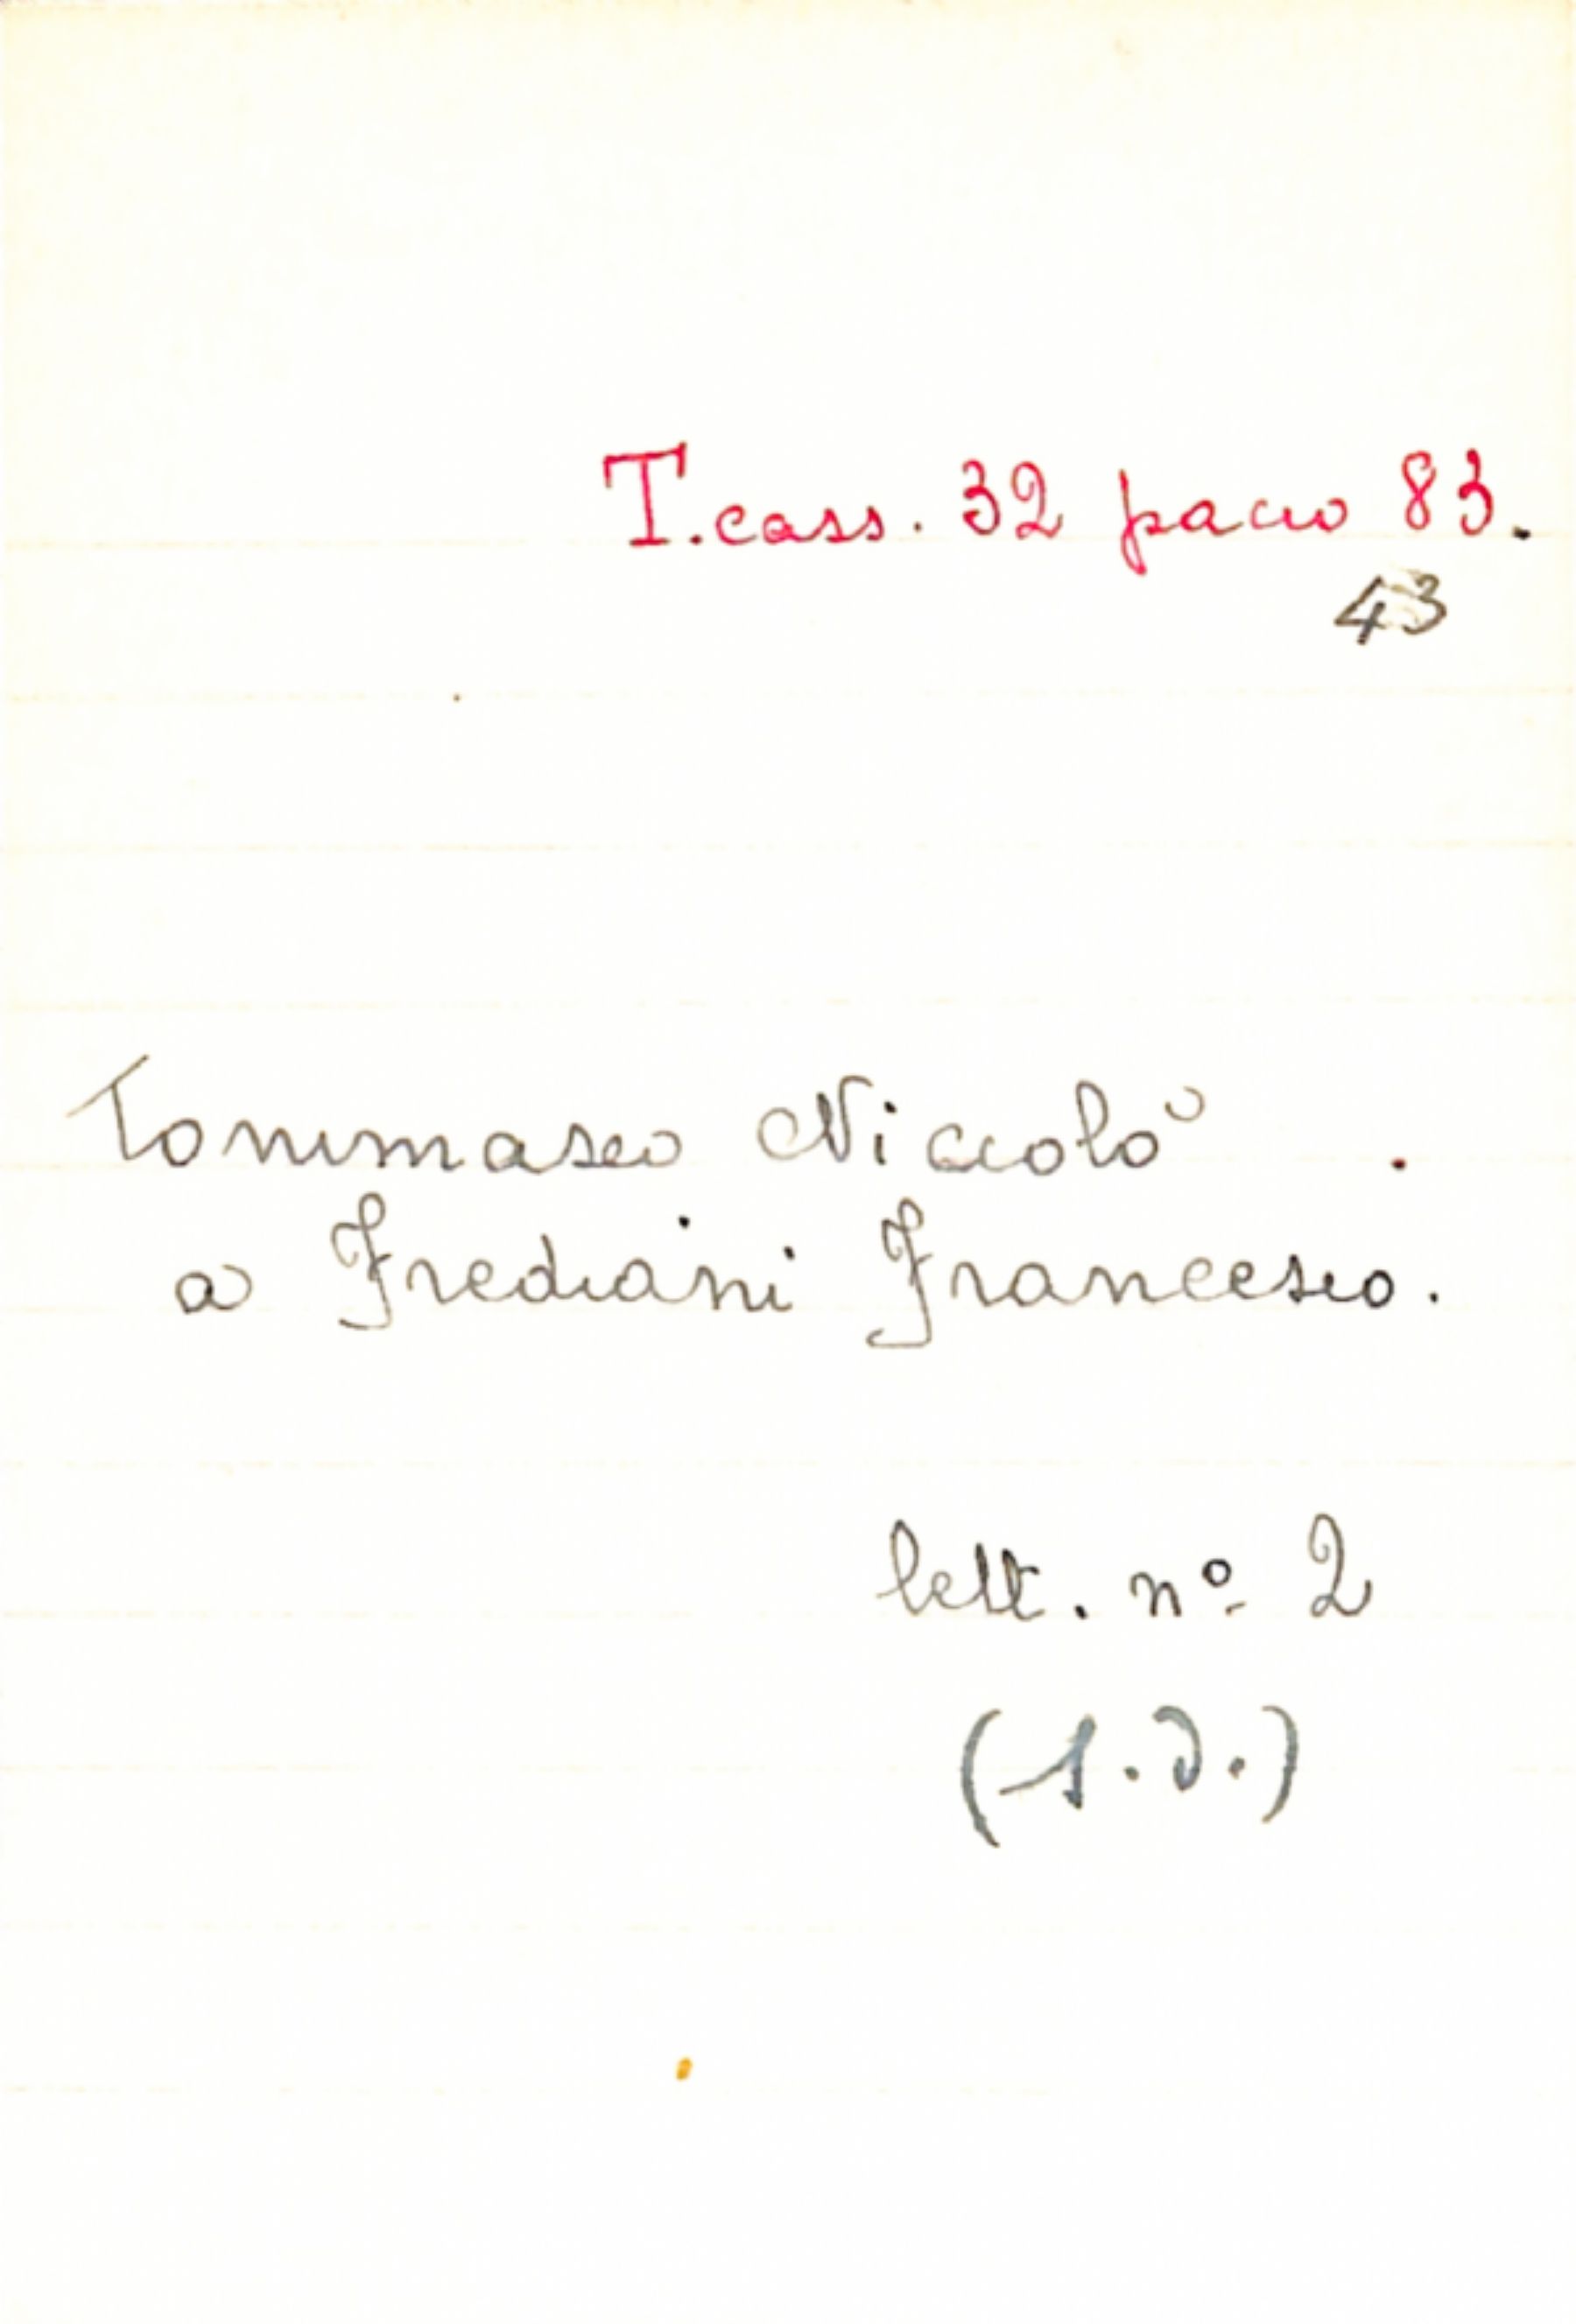 T. cass. 32 pacco 83.
43
Tommaseo Niccolò
a Frediani Francesco.
lett. nº 2
(s.d.)